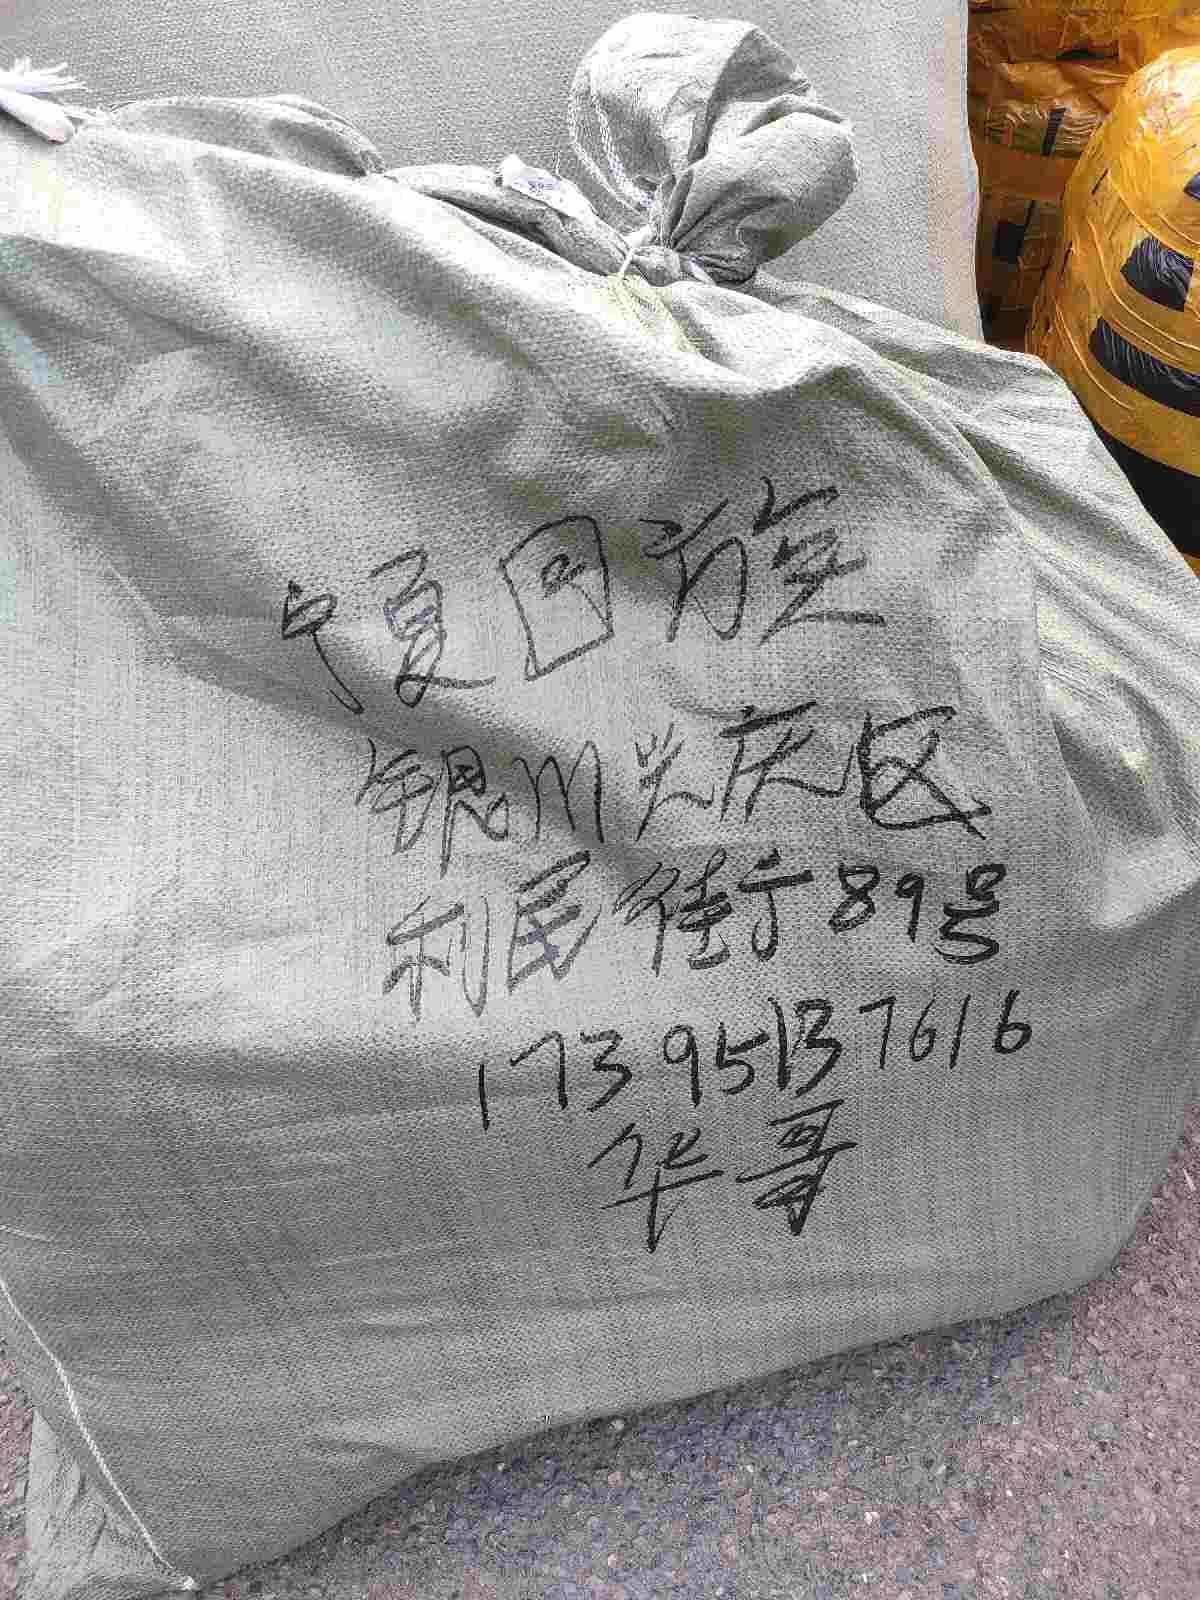 宁夏回族
银川兴庆区
利民街89号
17395137616
华哥